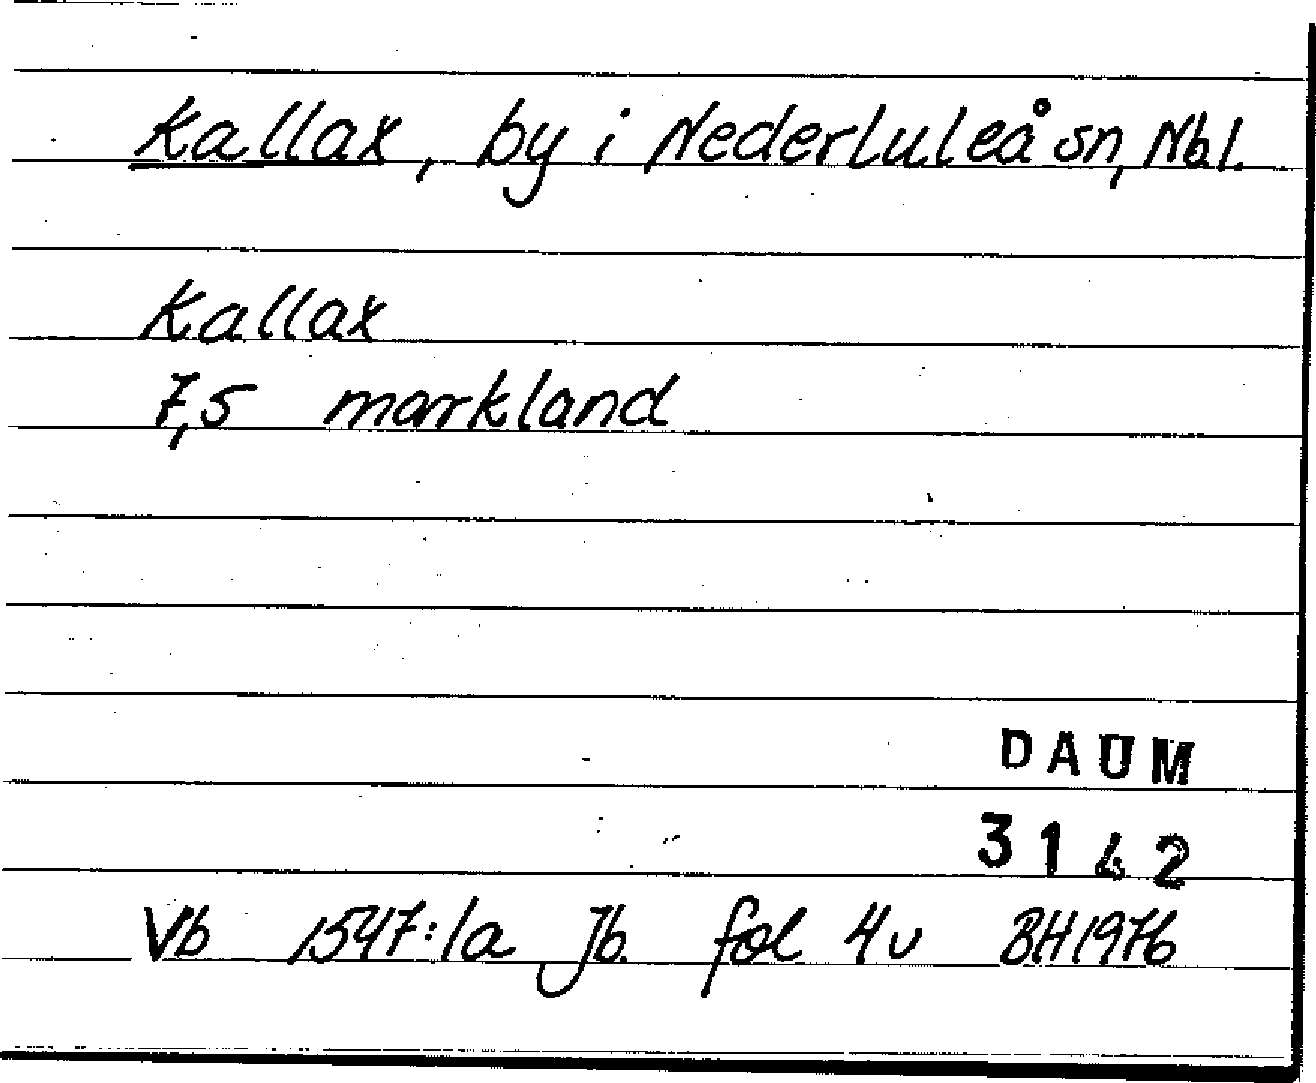 Kallax, by i Nederluleå sn, Nbl.
Kallax
7,5 markland
DAUM
3142
Vb 1547:1a Jb. fol 4v BH1976